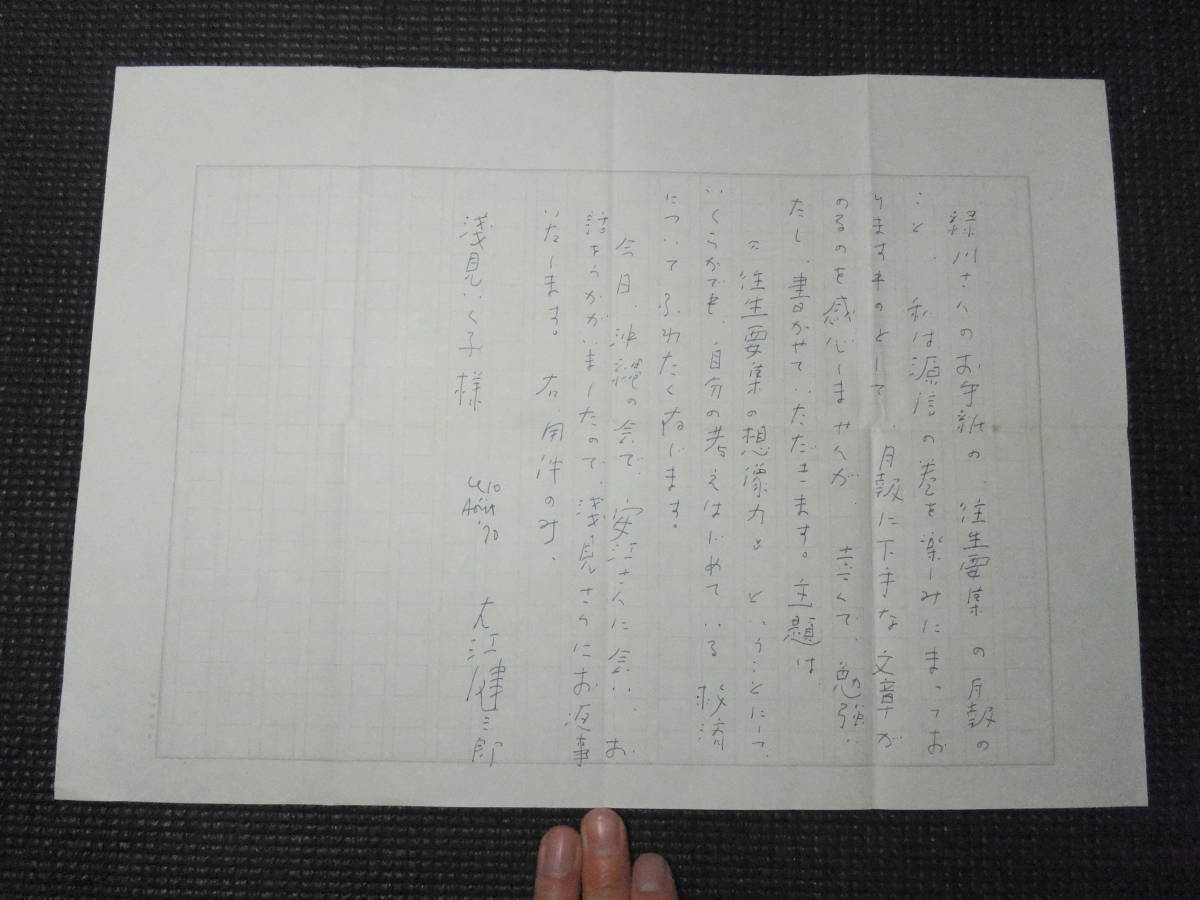 緑川さんへのお手紙の、往生要集の月報の
こと、私は源信の巻を楽しみにまってお
りますものとして、月報に下手な文章が
のるのを感心しませんが、喜んで、勉強い
たし、書かせていただきます。主題は
〝往生要集の想像力〟ということにして、
いくらかでも、自分の考えはじめている救済
についてふれたく存じます。
今日、沖縄の会で、安江さんに会い、お
話をうかがいましたので、浅見さんにお返事
いたします。右、用件のみ、
浅見いく子様
10
Avril
'70
大江健三郎